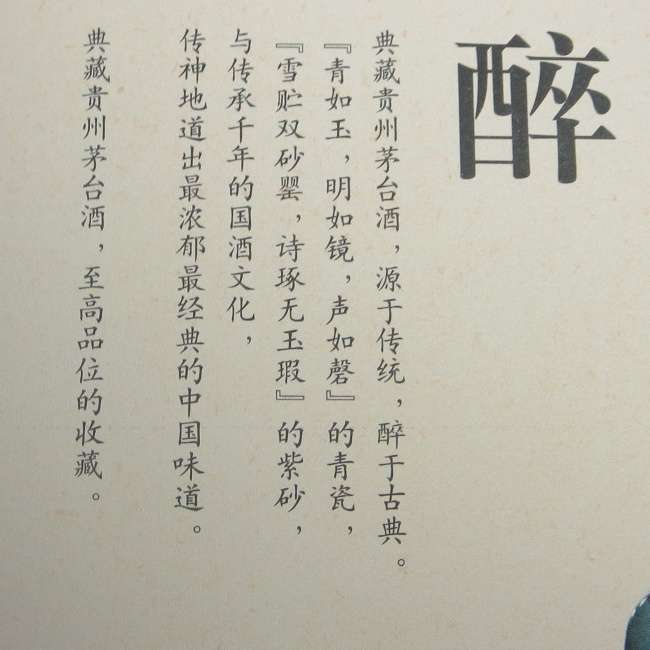 醉
典藏贵州茅台酒，源于传统，醉于古典。
『青如玉，明如镜，声如磬』的青瓷，
『雪贮双砂罂，诗琢无玉瑕』的紫砂，
与传承千年的国酒文化，
传神地道出最浓郁最经典的中国味道。
典藏贵州茅台酒，至高品位的收藏。